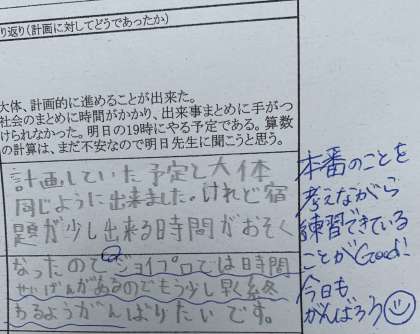 り返り(計画に対してどうであったか)
大体、計画的に進めることが出来た。
社会のまとめに時間がかかり、出来事まとめに手がつ
けられなかった。明日の19時にやる予定である。算数
の計算は、まだ不安なので明日先生に聞こうと思う。
計画していた予定と大体
同じように出来ました。けれど宿
題が少し出来る時間がおそく
なったので ジョイプロでは時間
せいげんがあるのでもう少し早く終
あるようがんばりたいです。
本番のことを
考えながら
練習できている
ことがGood!
今日も
がんばろう